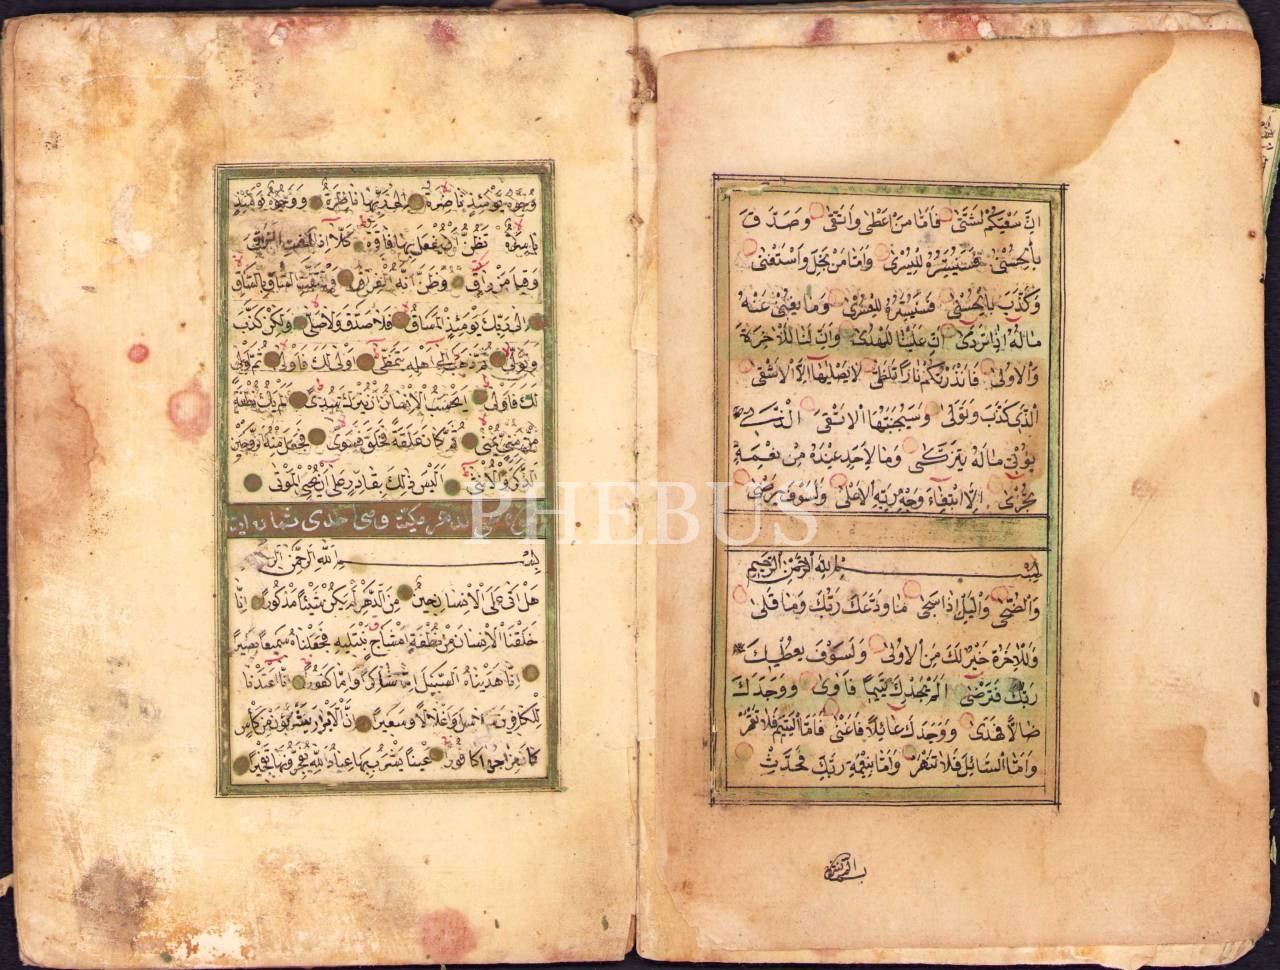 اِنَّ سَعْيَكُمْ لَشَتّٰى فَاَمَّا مَنْ اَعْطٰى وَاتَّقٰى وَصَدَّقَ
بِالْحُسْنٰى فَسَنُيَسِّرُهُ لِلْيُسْرٰى وَاَمَّا مَنْ بَخِلَ وَاسْتَغْنٰى
وَكَذَّبَ بِالْحُسْنٰى فَسَنُيَسِّرُهُ لِلْعُسْرٰى وَمَا يُغْنِي عَنْهُ
مَالُهُ اِذَا تَرَدّٰى اِنَّ عَلَيْنَا لَلْهُدٰى وَاِنَّ لَنَا لَلْاٰخِرَةَ
وَالْاُولٰى فَاَنْذَرْتُكُمْ نَارًا تَلَظّٰى لَا يَصْلٰيهَا اِلَّا الْاَشْقٰى
الَّذِي كَذَّبَ وَتَوَلّٰى وَسَيُجَنَّبُهَا الْاَتْقٰى الَّذِي
يُؤْتِي مَالَهُ يَتَزَكّٰى وَمَا لِاَحَدٍ عِنْدَهُ مِنْ نِعْمَةٍ
تُجْزٰى اِلَّا ابْتِغَاءَ وَجْهِ رَبِّهِ الْاَعْلٰى وَلَسَوْفَ يَرْضٰى
بِسْمِ اللّٰهِ الرَّحْمٰنِ الرَّحِيمِ
وَالضُّحٰى وَاللَّيْلِ اِذَا سَجٰى مَا وَدَّعَكَ رَبُّكَ وَمَا قَلٰى
وَلَلْاٰخِرَةُ خَيْرٌ لَكَ مِنَ الْاُولٰى وَلَسَوْفَ يُعْطِيكَ
رَبُّكَ فَتَرْضٰى اَلَمْ يَجِدْكَ يَتِيمًا فَاٰوٰى وَوَجَدَكَ
ضَالًّا فَهَدٰى وَوَجَدَكَ عَائِلًا فَاَغْنٰى فَاَمَّا الْيَتِيمَ فَلَا تَقْهَرْ
وَاَمَّا السَّائِلَ فَلَا تَنْهَرْ وَاَمَّا بِنِعْمَةِ رَبِّكَ فَحَدِّثْ
وُجُوهٌ يَوْمَئِذٍ نَاضِرَةٌ اِلٰى رَبِّهَا نَاظِرَةٌ وَوُجُوهٌ يَوْمَئِذٍ
بَاسِرَةٌ تَظُنُّ اَنْ يُفْعَلَ بِهَا فَاقِرَةٌ كَلَّا اِذَا بَلَغَتِ التَّرَاقِيَ
وَقِيلَ مَنْ رَاقٍ وَظَنَّ اَنَّهُ الْفِرَاقُ وَالْتَفَّتِ السَّاقُ بِالسَّاقِ
اِلٰى رَبِّكَ يَوْمَئِذٍ الْمَسَاقُ فَلَا صَدَّقَ وَلَا صَلّٰى وَلٰكِنْ كَذَّبَ
وَتَوَلّٰى ثُمَّ ذَهَبَ اِلٰى اَهْلِهِ يَتَمَطّٰى اَوْلٰى لَكَ فَاَوْلٰى ثُمَّ اَوْلٰى
لَكَ فَاَوْلٰى اَيَحْسَبُ الْاِنْسَانُ اَنْ يُتْرَكَ سُدًى اَلَمْ يَكُ نُطْفَةً
مِنْ مَنِيٍّ يُمْنٰى ثُمَّ كَانَ عَلَقَةً فَخَلَقَ فَسَوّٰى فَجَعَلَ مِنْهُ الزَّوْجَيْنِ
الذَّكَرَ وَالْاُنْثٰى اَلَيْسَ ذٰلِكَ بِقَادِرٍ عَلٰى اَنْ يُحْيِيَ الْمَوْتٰى
بِسْمِ اللّٰهِ الرَّحْمٰنِ
هَلْ اَتٰى عَلَى الْاِنْسَانِ حِينٌ مِنَ الدَّهْرِ لَمْ يَكُنْ شَيْئًا مَذْكُورًا اِنَّا
خَلَقْنَا الْاِنْسَانَ مِنْ نُطْفَةٍ اَمْشَاجٍ نَبْتَلِيهِ فَجَعَلْنَاهُ سَمِيعًا بَصِيرًا
اِنَّا هَدَيْنَاهُ السَّبِيلَ اِمَّا شَاكِرًا وَاِمَّا كَفُورًا اِنَّا اَعْتَدْنَا
لِلْكَافِرِينَ سَلَاسِلَ وَاَغْلَالًا وَسَعِيرًا اِنَّ الْاَبْرَارَ يَشْرَبُونَ مِنْ كَأْسٍ
كَانَ مِزَاجُهَا كَافُورًا عَيْنًا يَشْرَبُ بِهَا عِبَادُ اللّٰهِ يُفَجِّرُونَهَا تَفْجِيرًا
PHEBUS